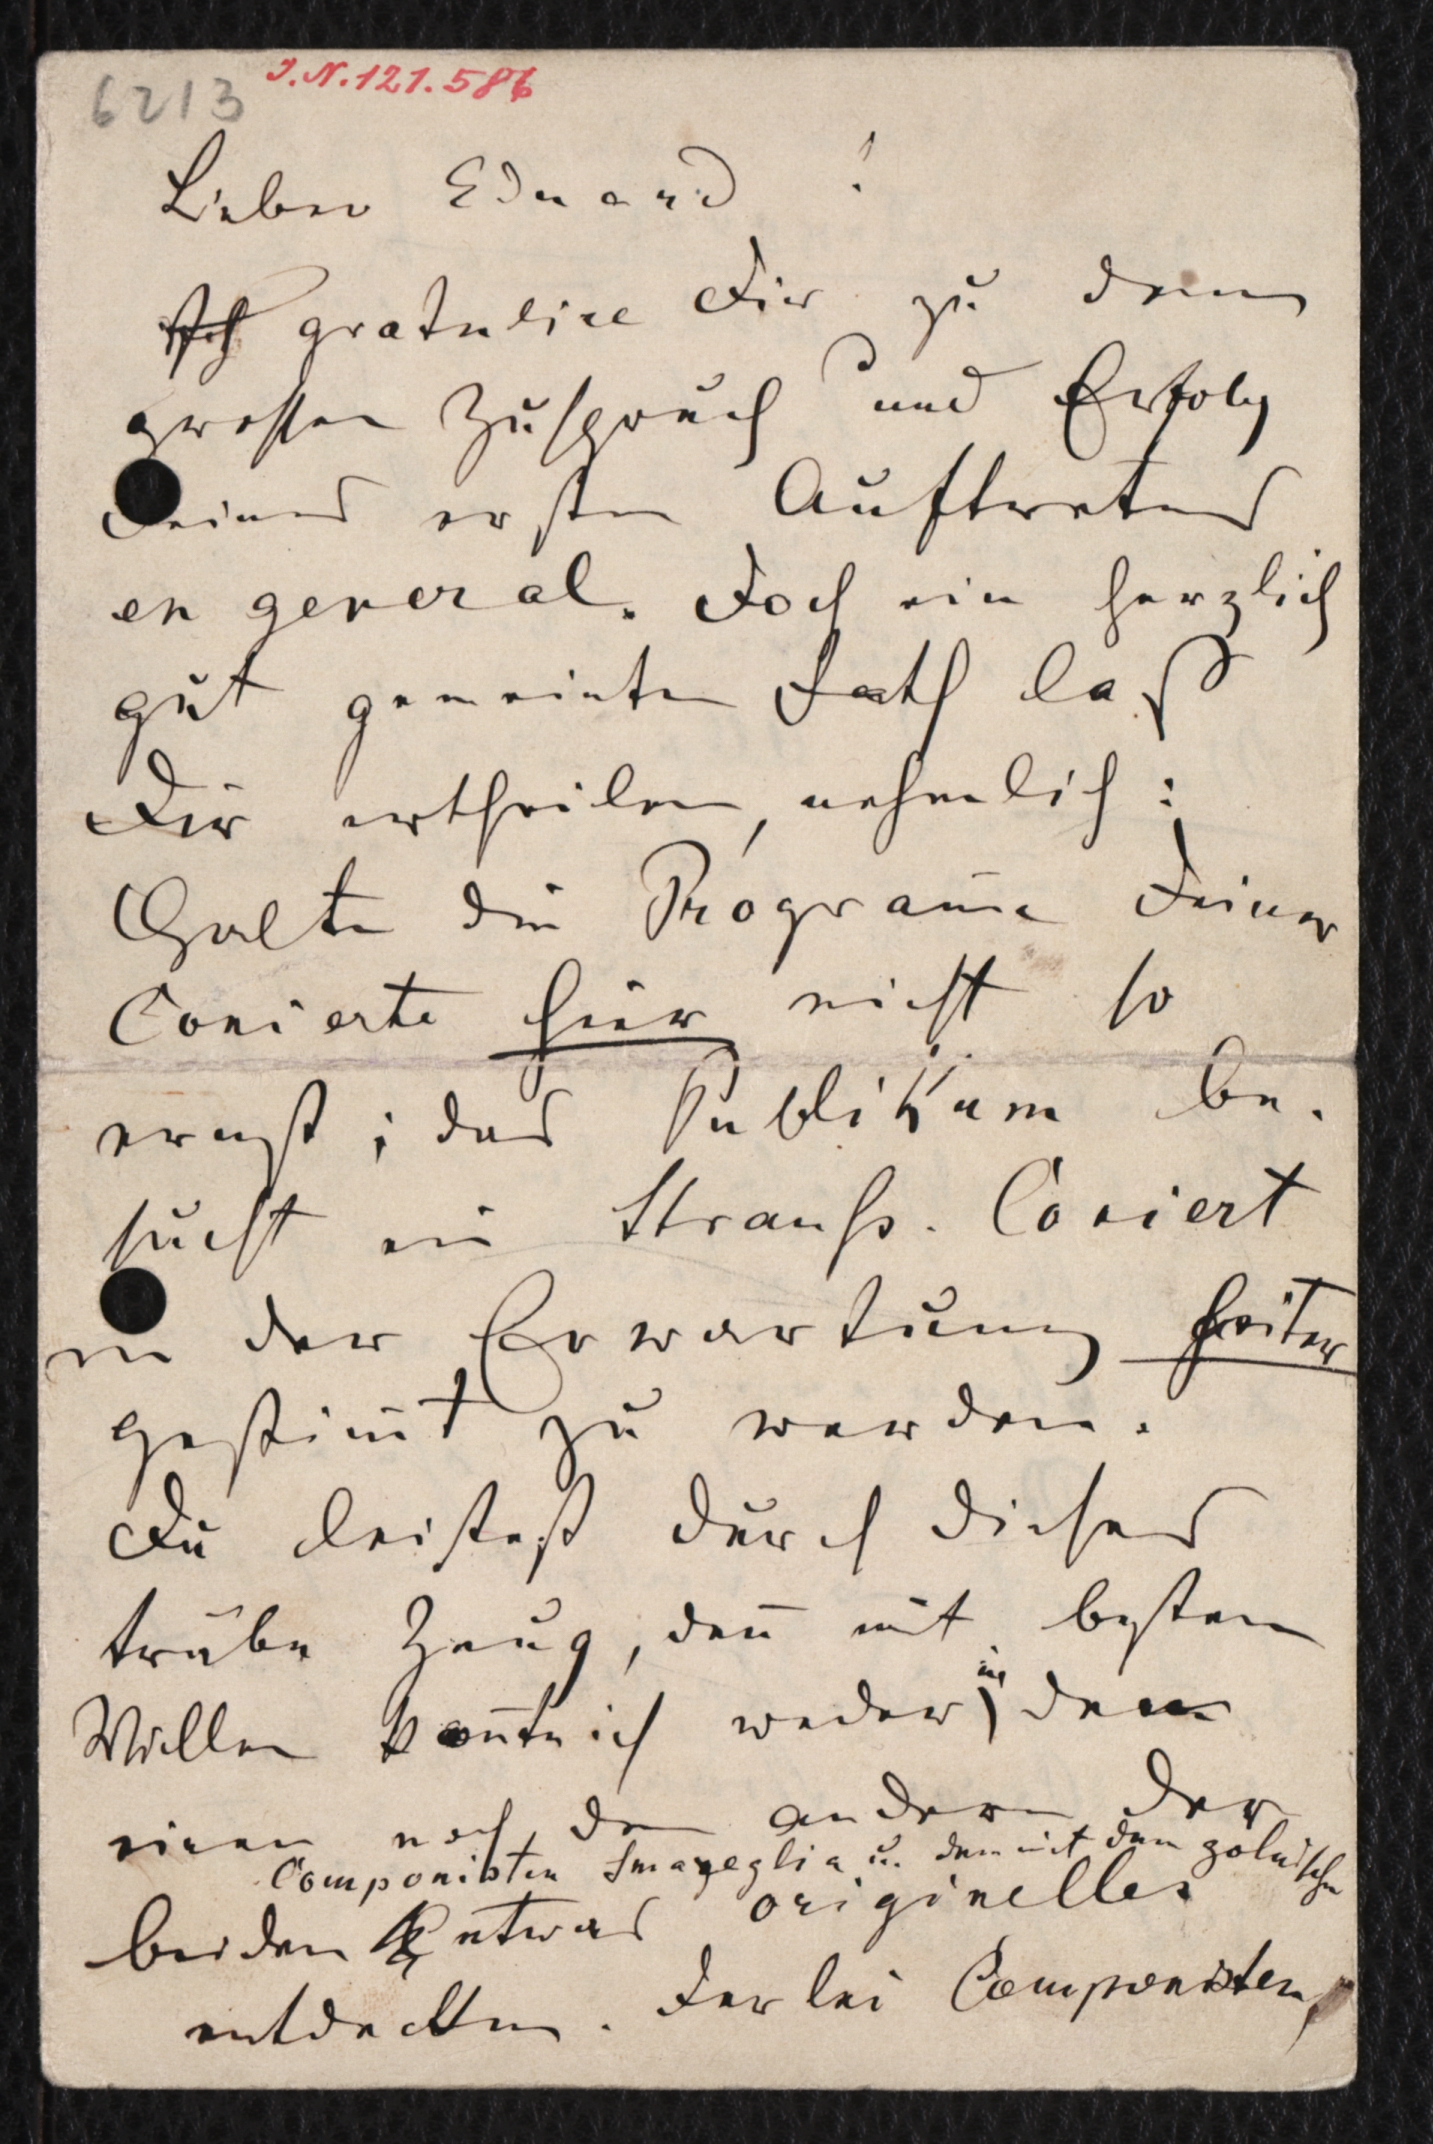 6213 I.N.121.586
Lieber Eduard !
Ich gratulire Dir zu dem
grossen Zuspruch und Erfolg
Deines ersten Auftretens
en general. Doch ein herzlich
gut gemeinten Rath laß
Dir ertheilen, nehmlich:
Halte die Programe Deiner
Concerte hier nicht so
ernst; das Publikum be-
sucht ein Strauss-Concert
in der Erwartung heiter
gestimt zu werden.
Du leistest durch dieses
trübe Zeug, den mit besten
Willen konte ich weder in dem
einen noch dem andern der
Componisten Smareglia u. dem mit dem polnischen
beiden etwas originelles
entdecken. Derlei Componisten,